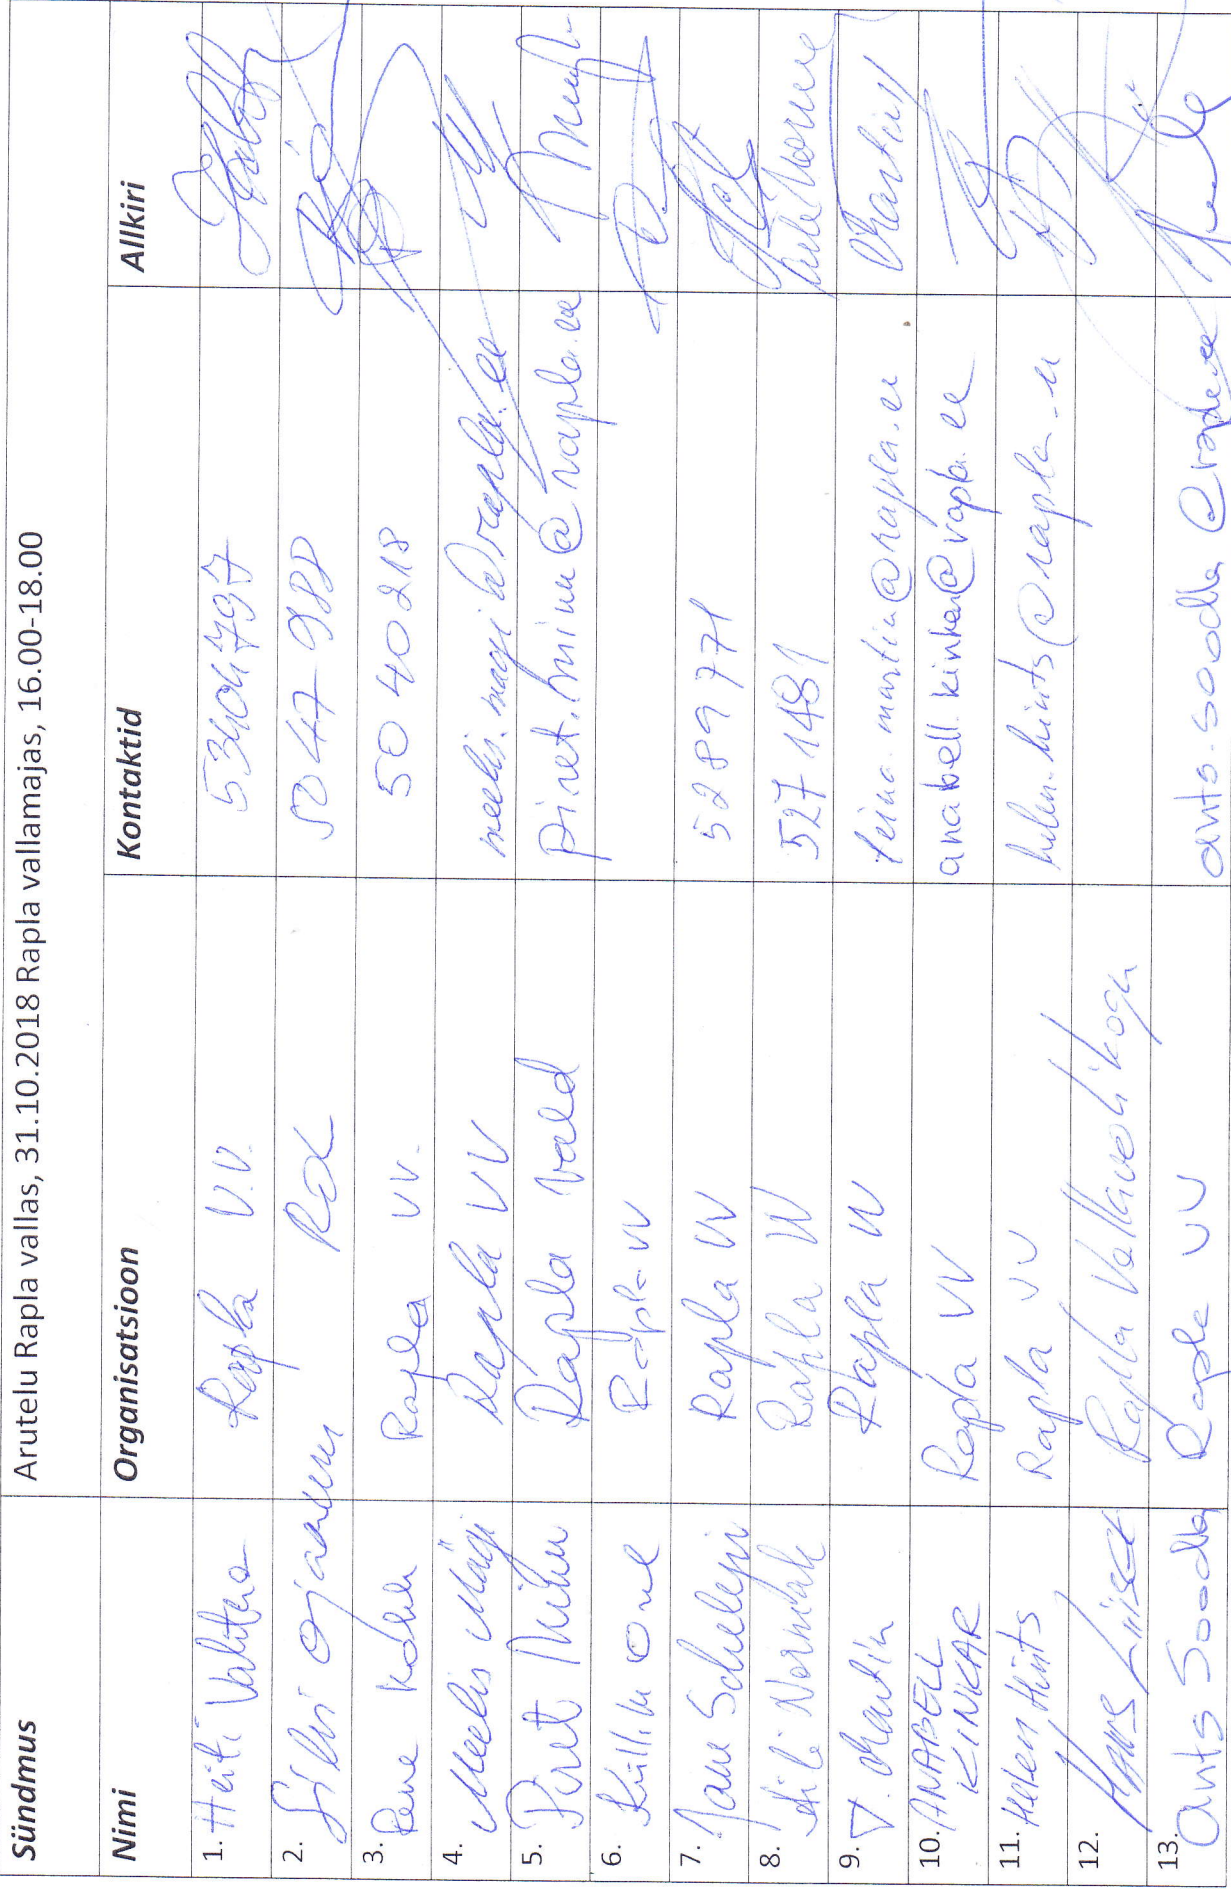 Sündmus Arutelu Rapla vallas, 31.10.2018 Rapla vallamajas, 16.00-18.00
Nimi Organisatsioon Kontaktid Allkiri
1. Heiti Vahtra Rapla V.V. 53404797
2. Silvi Ojamuru 5047988
3. Rene Kohu Rapla VV. 5040218
4. Meelis Mägi Rapla VV meelis.magi@rapla.ee
5. Piret Minn Rapla Vald piret.minn@rapla.ee
6. Rapla VV
7. Jane Schelejev Rapla VV 5289771
8. Rapla VV 5271481
9. T. Martin Rapla VV tiina.martin@rapla.ee
10. ANABELL KINKAR Rapla VV anabell.kinkar@rapla.ee
11. Helen Hints Rapla VV helen.hints@rapla.ee
12. Rapla Vallavolikogu
13. Ants Soodla Rapla VV ants.soodla@rapla.ee